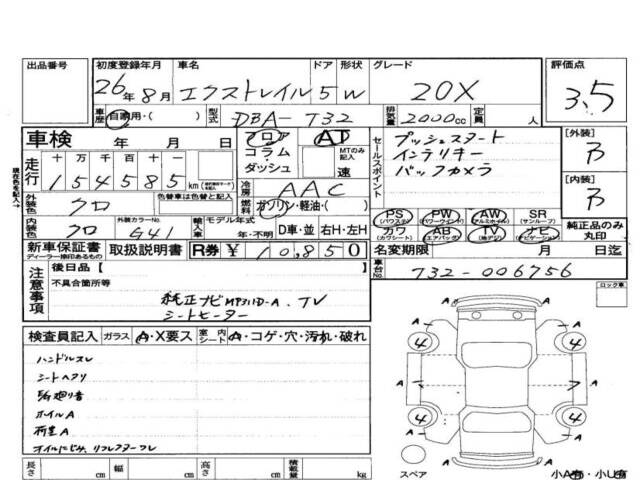 出品番号 初度登録年月 車名 ドア 形状 グレード 評価点
26年8月 エクストレイル 5 W 20X 3.5
車歴 自家用・( ) 型式 DBA-T32 排気量 2000cc 定員 人
車検 年 月 日 フロア AT プッシュスタート 【外装】
コラム・ダッシュ MTのみ記入 速 セールスポイント インテリキー B
走行 十万千百十一 バックカメラ
154585 km 冷房 AAC 【内装】
外装色 クロ 色替車は色替と記入 燃料 ガソリン・軽油・( ) B
PS (パワステ) PW (パワーウインド) AW (アルミホイル) SR (サンルーフ)
内装色 クロ 外装カラーNo. G41 輸入車 モデル年式 年・不明 D車・並 右H・左H カワ (カワシート) AB (エアバッグ) TV (地デジ) ナビ (ナビゲーション) 純正品のみ丸印
新車保証書 ディーラー捺印あるもの 取扱説明書 R券 ¥10,850 名変期限 月 日迄
注意事項 後日品【 車台No. T32-006756
不具合箇所等 ロック車
純正ナビMP311D-A、TV
シートヒーター
検査員記入 ガラス A・X要ス 室内シート A・コゲ・穴・汚れ・破れ
ハンドルスレ
シートヘタリ
ホイルA
荷室A
A A A
4 4
A 7 7 A
4 4
A A A
長さ cm 幅 cm 高さ cm 積載量 kg スペア 小A有・小U有
現在色を記入→